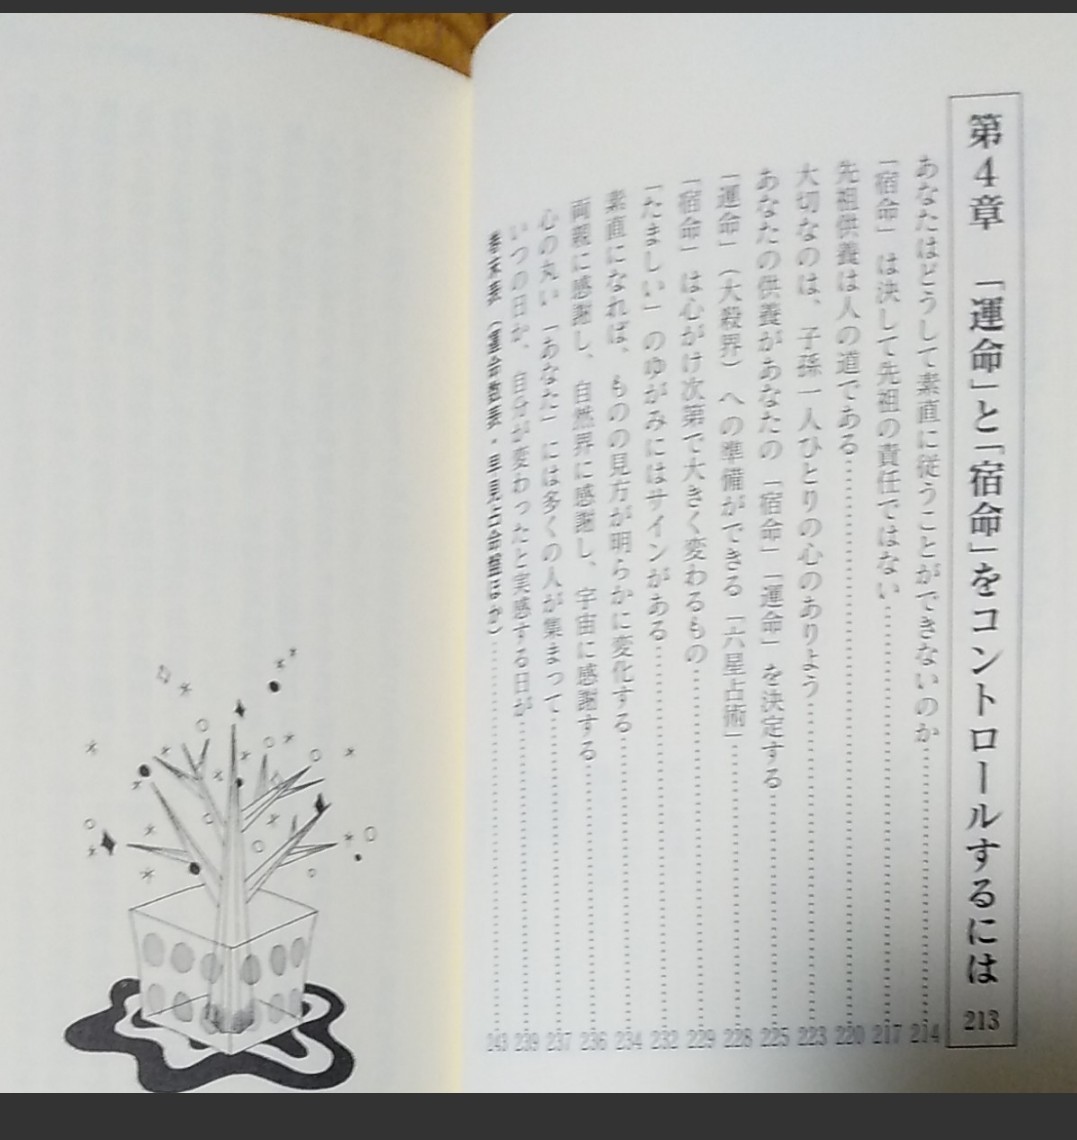 第4章　「運命」と「宿命」をコントロールするには 213
あなたはどうして素直に従うことができないのか 214
「宿命」は決して先祖の責任ではない 217
先祖供養は人の道である 220
大切なのは、子孫一人ひとりの心のありよう 223
あなたの供養があなたの「宿命」「運命」を決定する 225
「運命」（大殺界）への準備ができる「六星占術」 228
「宿命」は心がけ次第で大きく変わるもの 229
「たましい」のゆがみにはサインがある 232
素直になれば、ものの見方が明らかに変化する 234
両親に感謝し、自然界に感謝し、宇宙に感謝する 236
心の丸い「あなた」には多くの人が集まって 237
いつの日か、自分が変わったと実感する日が 239
巻末表（運命数表・早見占命盤ほか） 243